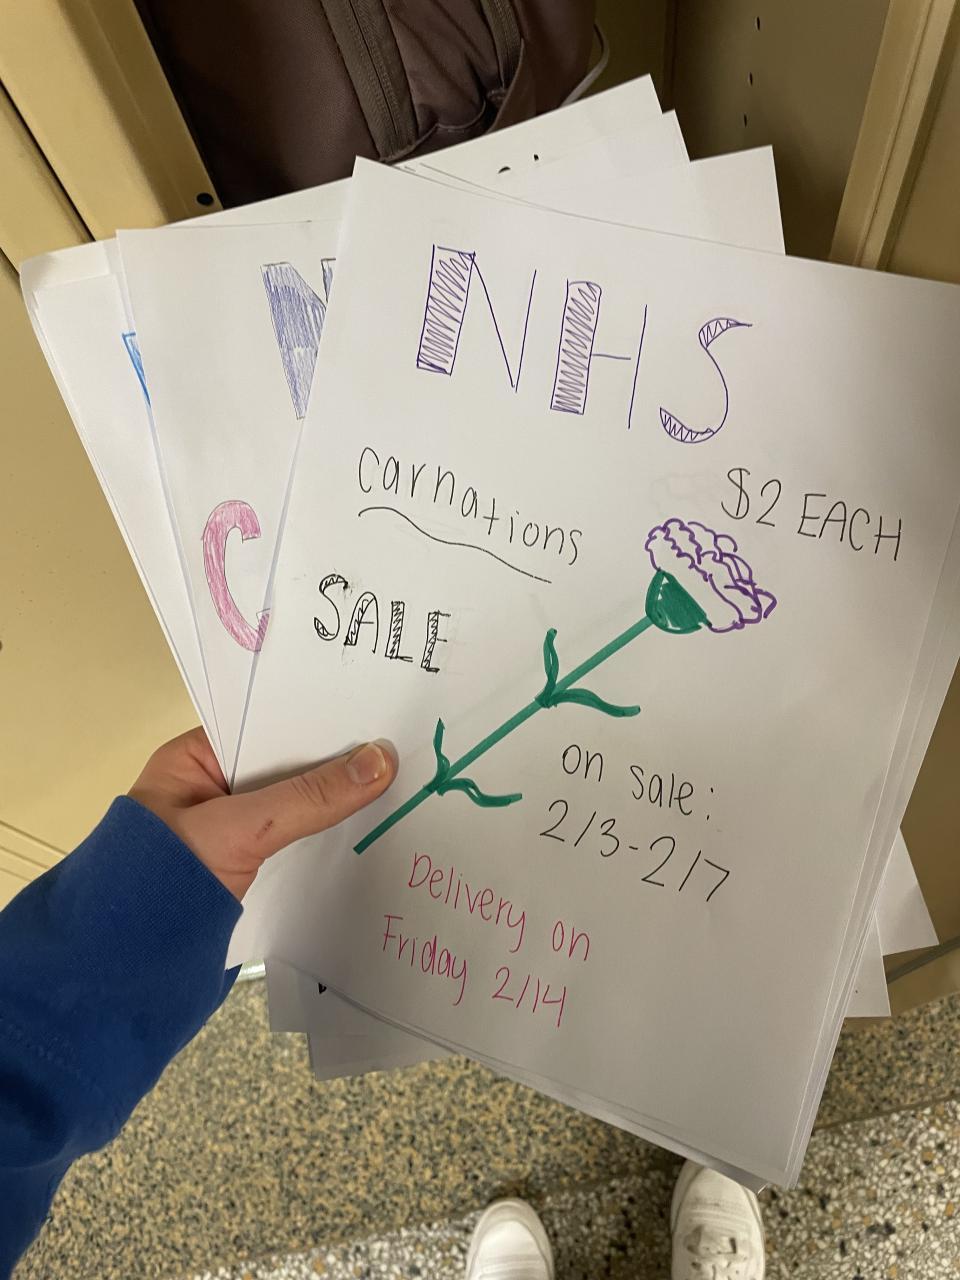 NHS
$2 EACH
carnations
SALE
on sale:
2/3-2/7
Delivery on
Friday 2/14
N
C